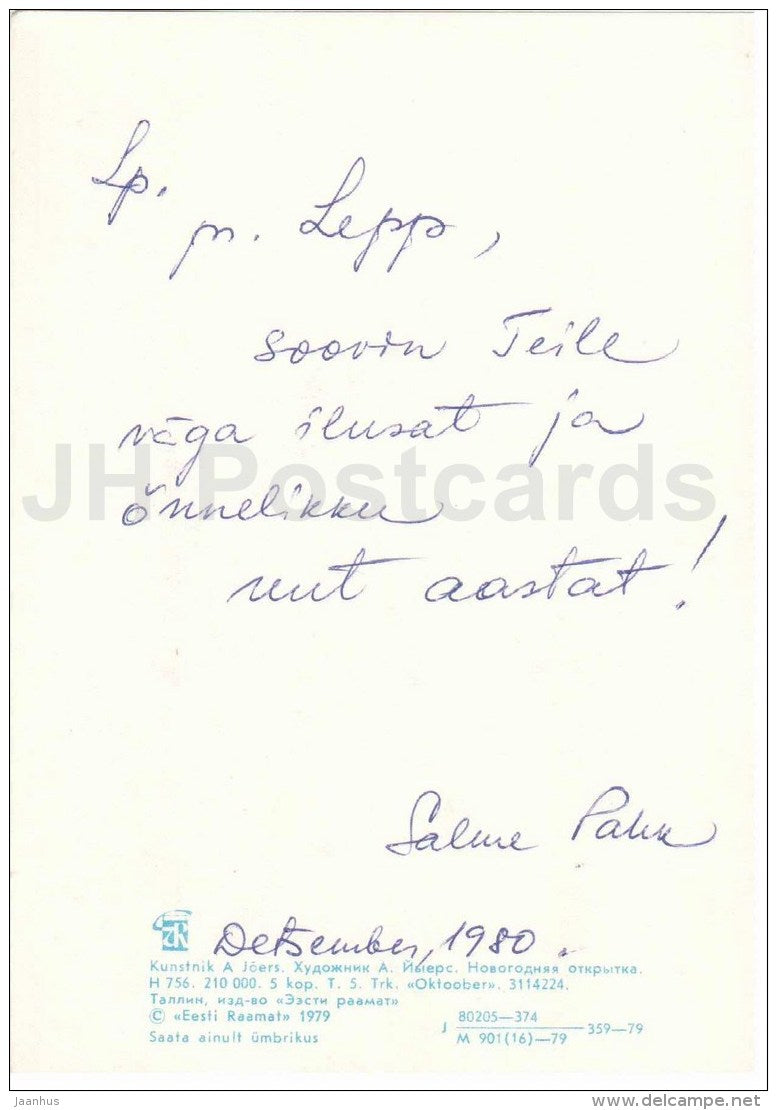 Lp.
pr. Lepp,
soovin Teile
väga ilusat ja
JH Postcards
õnnelikku
uut aastat!
Salme Pakk
Detsember, 1980.
Kunstnik A Jõers. Художник А. Йыерс. Новогодняя открытка.
H 756. 210 000. 5 kop. T. 5. Trk. «Oktoober». 3114224.
Таллин, изд-во «Ээсти раамат»
© «Eesti Raamat» 1979
Saata ainult ümbrikus
J 80205—374 359—79
M 901(16)—79
Jaanhus
www.delcampe.net